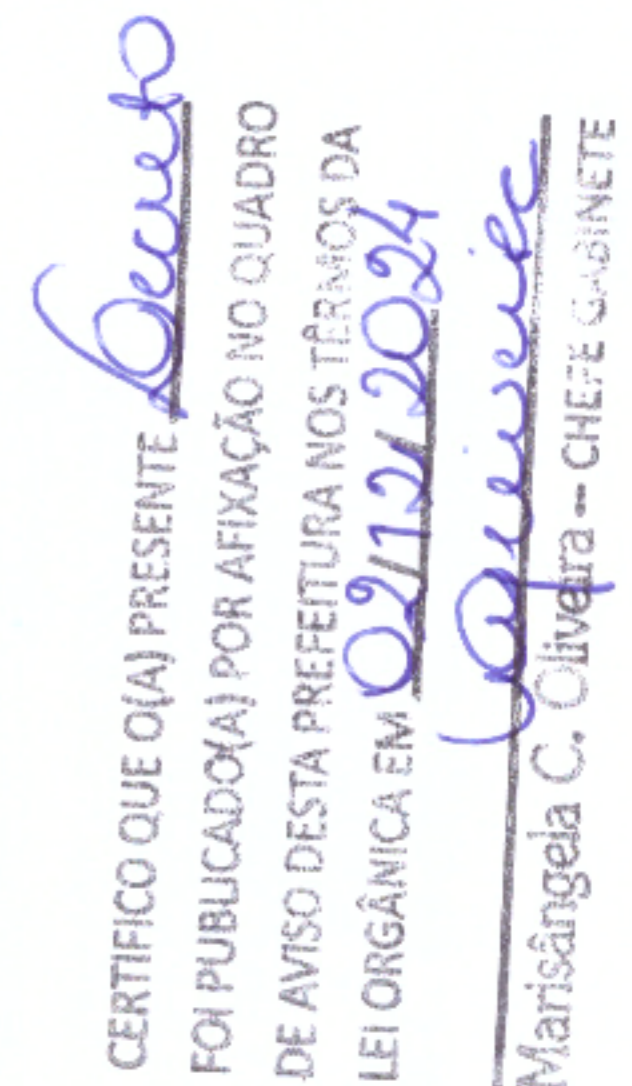 CERTIFICO QUE O(A) PRESENTE Decreto
FOI PUBLICADO(A) POR AFIXAÇÃO NO QUADRO
DE AVISO DESTA PREFEITURA NOS TÊRMOS DA
LEI ORGÂNICA EM 02/12/2024
Marisângela C. Oliveira -- CHEFE GABINETE